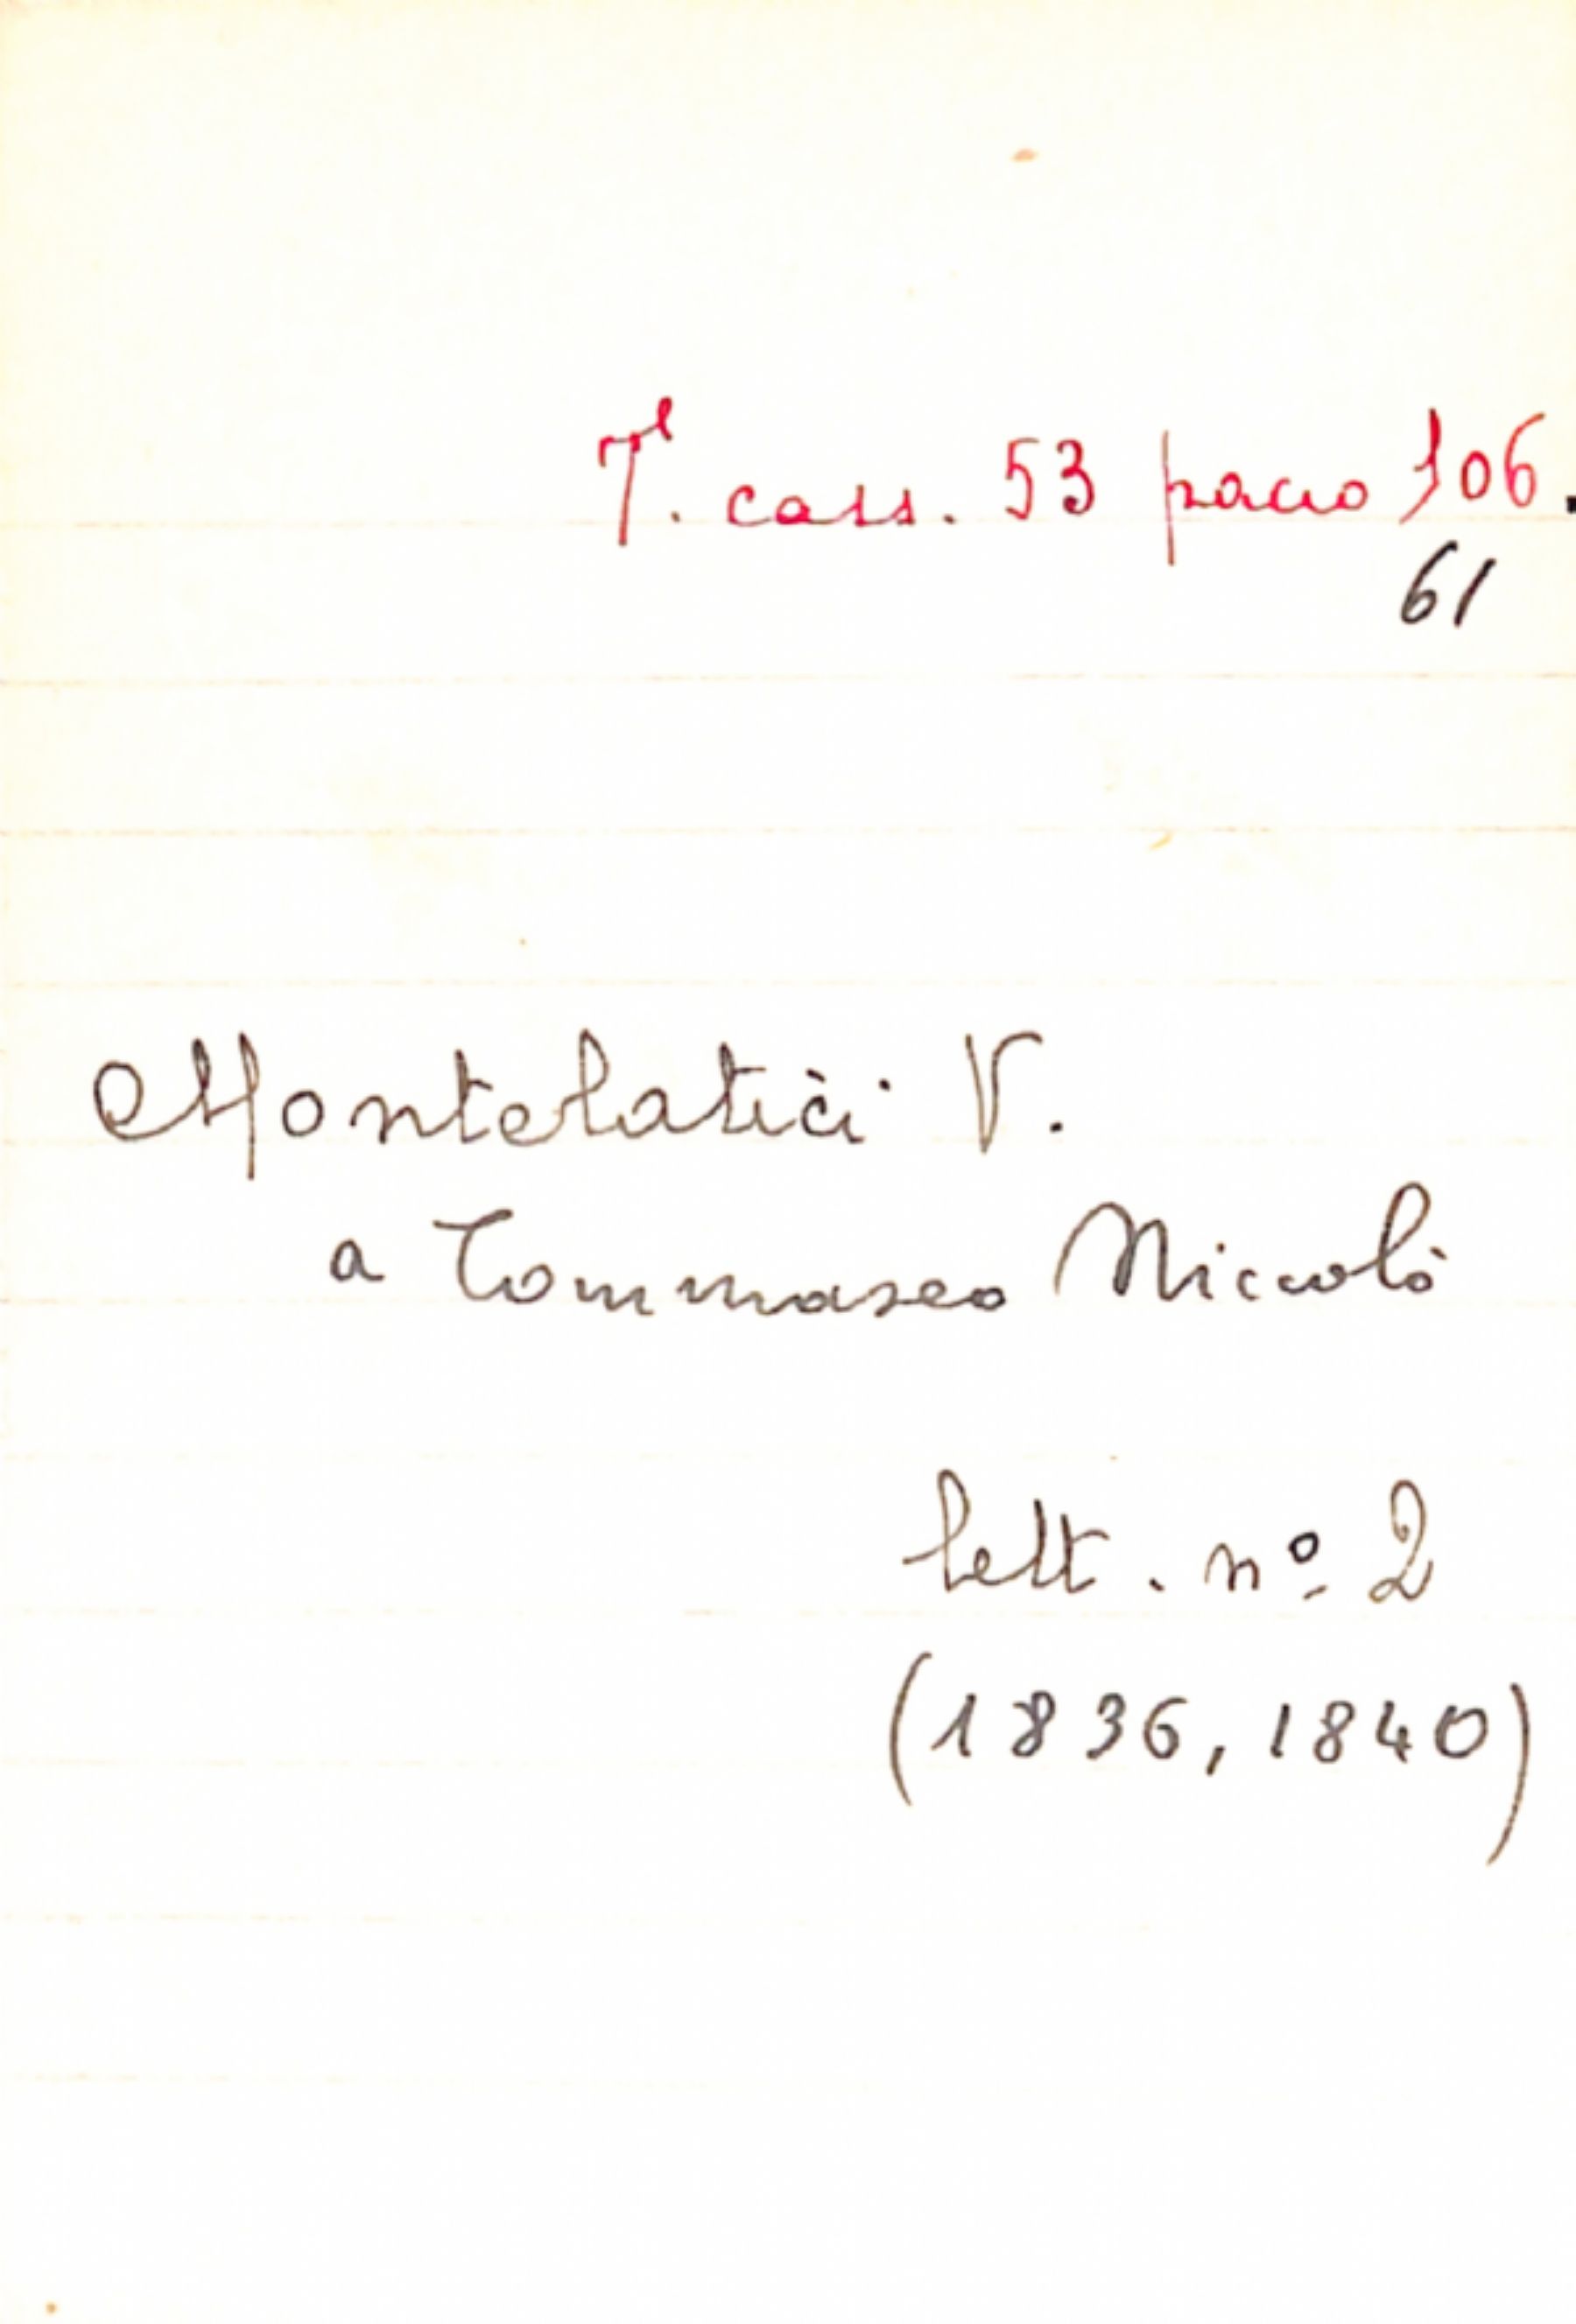 Tl. cass. 53 pacco 106.
61
Montelatici V.
a Tommaseo Niccolò
lett. nº 2
(1836, 1840)